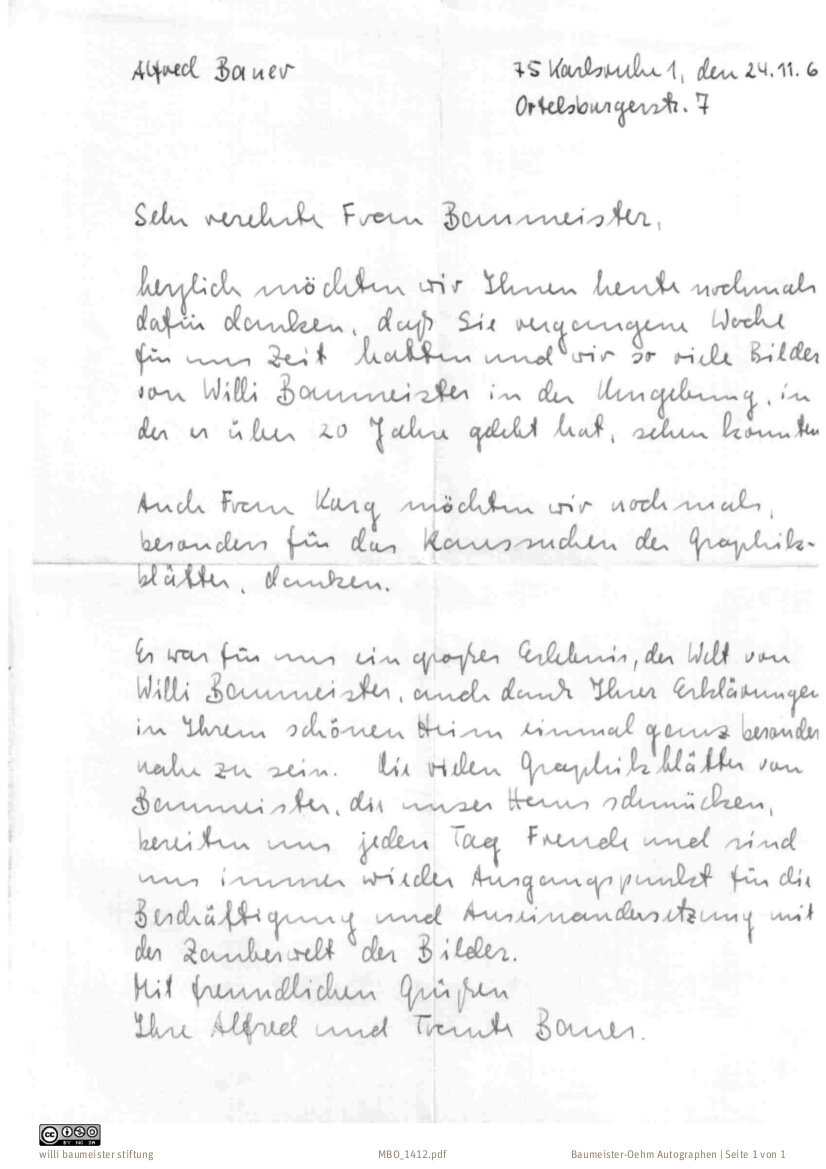 Alfred Bauer
75 Karlsruhe 1, den 24.11.6
Ortelsburgerstr. 7
Sehr verehrte Frau Baumeister,
herzlich möchten wir Ihnen heute nochmals
dafür danken, daß Sie vergangene Woche
für uns Zeit hatten und wir so viele Bilder
von Willi Baumeister in der Umgebung, in
der er über 20 Jahre gelebt hat, sehen konnten
Auch Frau Karg möchten wir nochmals,
besonders für das Raussuchen der Graphik-
blätter, danken.
Es war für uns ein großes Erlebnis, der Welt von
Willi Baumeister, auch dank Ihrer Erklärungen
in Ihrem schönen Heim einmal ganz besonders
nahe zu sein. Die vielen Graphikblätter von
Baumeister, die unser Haus schmücken,
bereiten uns jeden Tag Freude und sind
uns immer wieder Ausgangspunkt für die
Beschäftigung und Auseinandersetzung mit
der Zauberwelt der Bilder.
Mit freundlichen Grüßen
Ihre Alfred und Traute Bauer.
CC BY NC SA
willi baumeister stiftung
MBO_1412.pdf
Baumeister-Oehm Autographen | Seite 1 von 1